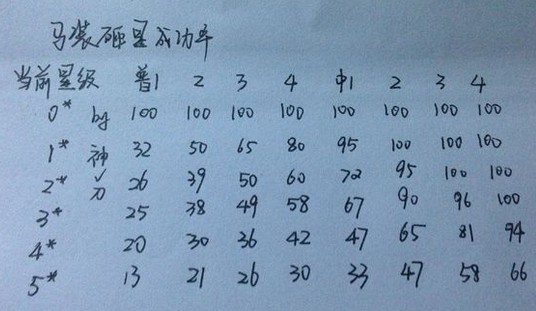 马装砸星成功率
当前星级 普1 2 3 4 中1 2 3 4
0* by 100 100 100 100 100 100 100 100
1* 神 32 50 65 80 95 100 100 100
2* 26 39 50 60 72 95 100 100
3* 刀 25 38 49 58 67 90 96 100
4* 20 30 36 42 47 65 81 94
5* 13 21 26 30 33 47 58 66